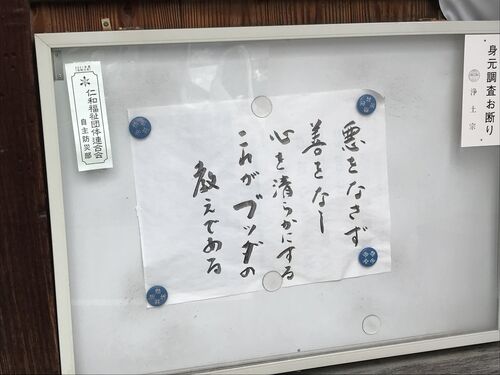 身元調査お断り
浄土宗
悪をなさず
善をなし
心を清らかにする
これがブッダの
教えである
仁和福祉団体連合会
自主防災部